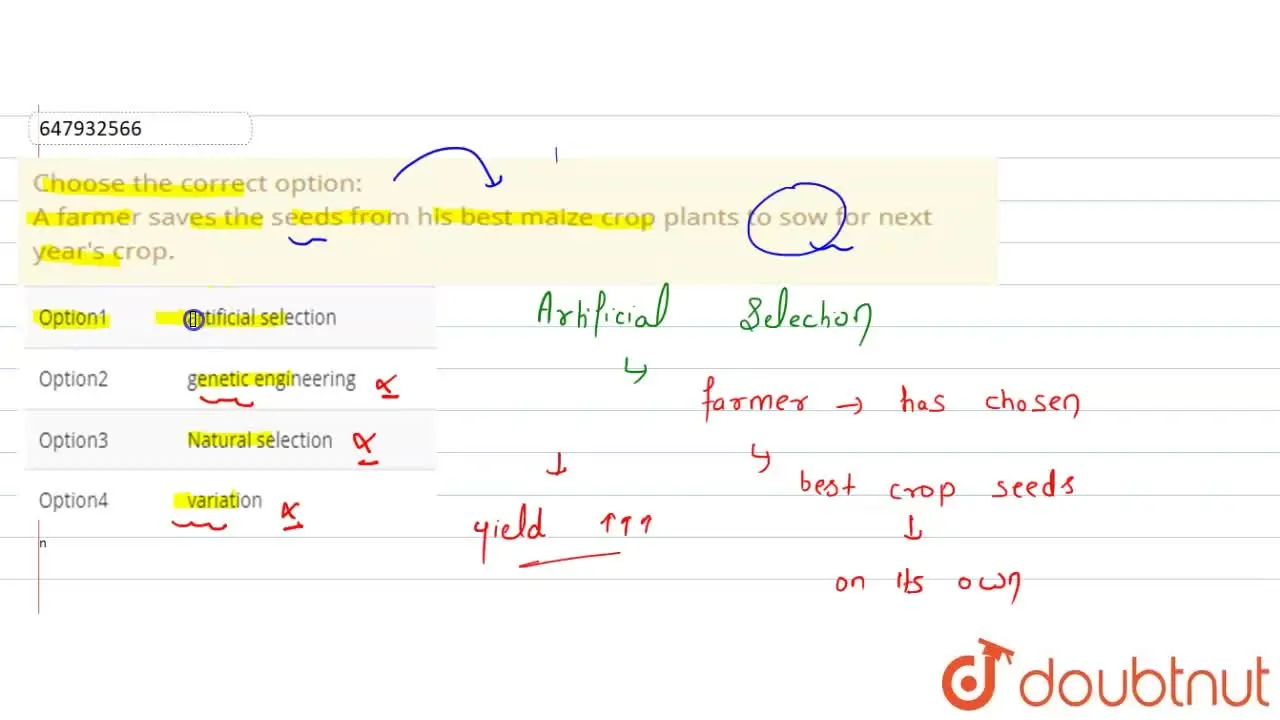 647932566
Choose the correct option:
A farmer saves the seeds from his best maize crop plants to sow for next
year's crop.
Option1 artificial selection
Option2 genetic engineering
Option3 Natural selection
Option4 variation
n
Artificial Selection
farmer → has chosen
best crop seeds
yield ↑↑↑
on its own
doubtnut